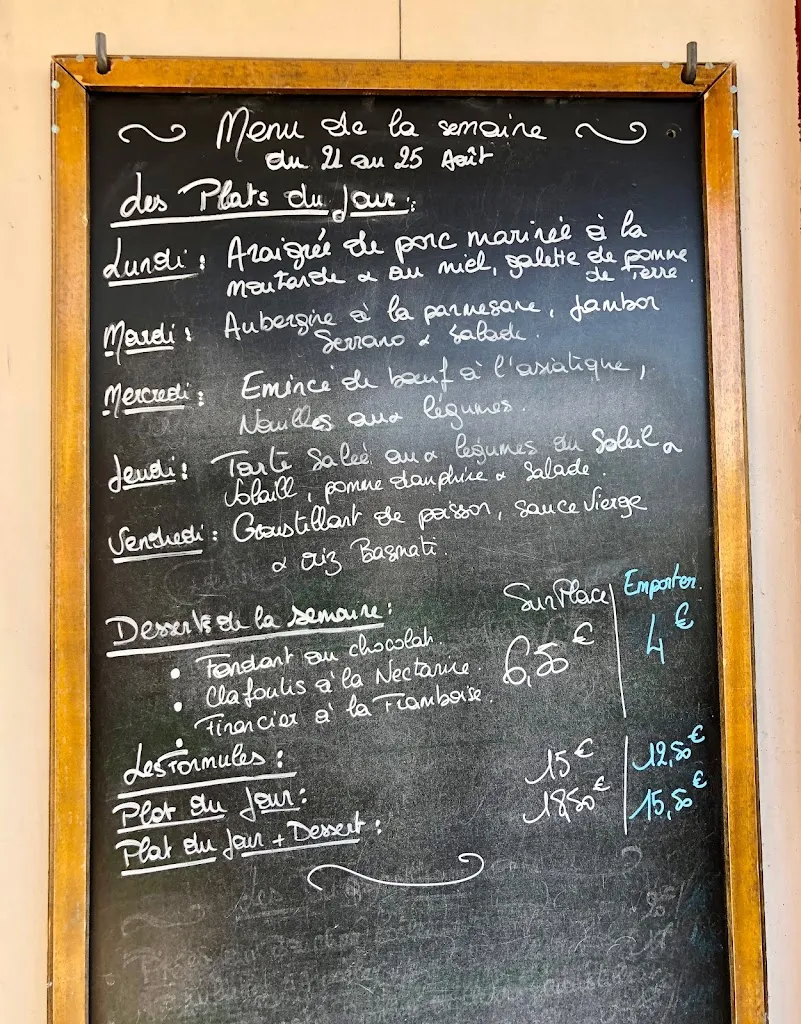 Menu de la semaine
du 21 au 25 Août
Les Plats du Jour :
Lundi : Araignée de porc marinée à la
moutarde & au miel, galette de pomme
de Terre.
Mardi : Aubergine à la parmesane, Jambon
Serrano & Salade.
Mercredi : Emincé de bœuf à l'asiatique,
Nouilles aux légumes.
Jeudi : Tarte Salée aux légumes du Soleil &
Volaill, pomme dauphine & Salade.
Vendredi : Croustillant de poisson, sauce Vierge
& riz Basmati.
Desserts de la semaine : Sur Place Emporter.
• Fondant au chocolat.
• Clafoutis à la Nectarine. 6,50€ 4€
• Financier à la Framboise.
Les Formules :
Plat du Jour : 15€ 12,50€
Plat du Jour + Dessert : 18,50€ 15,50€